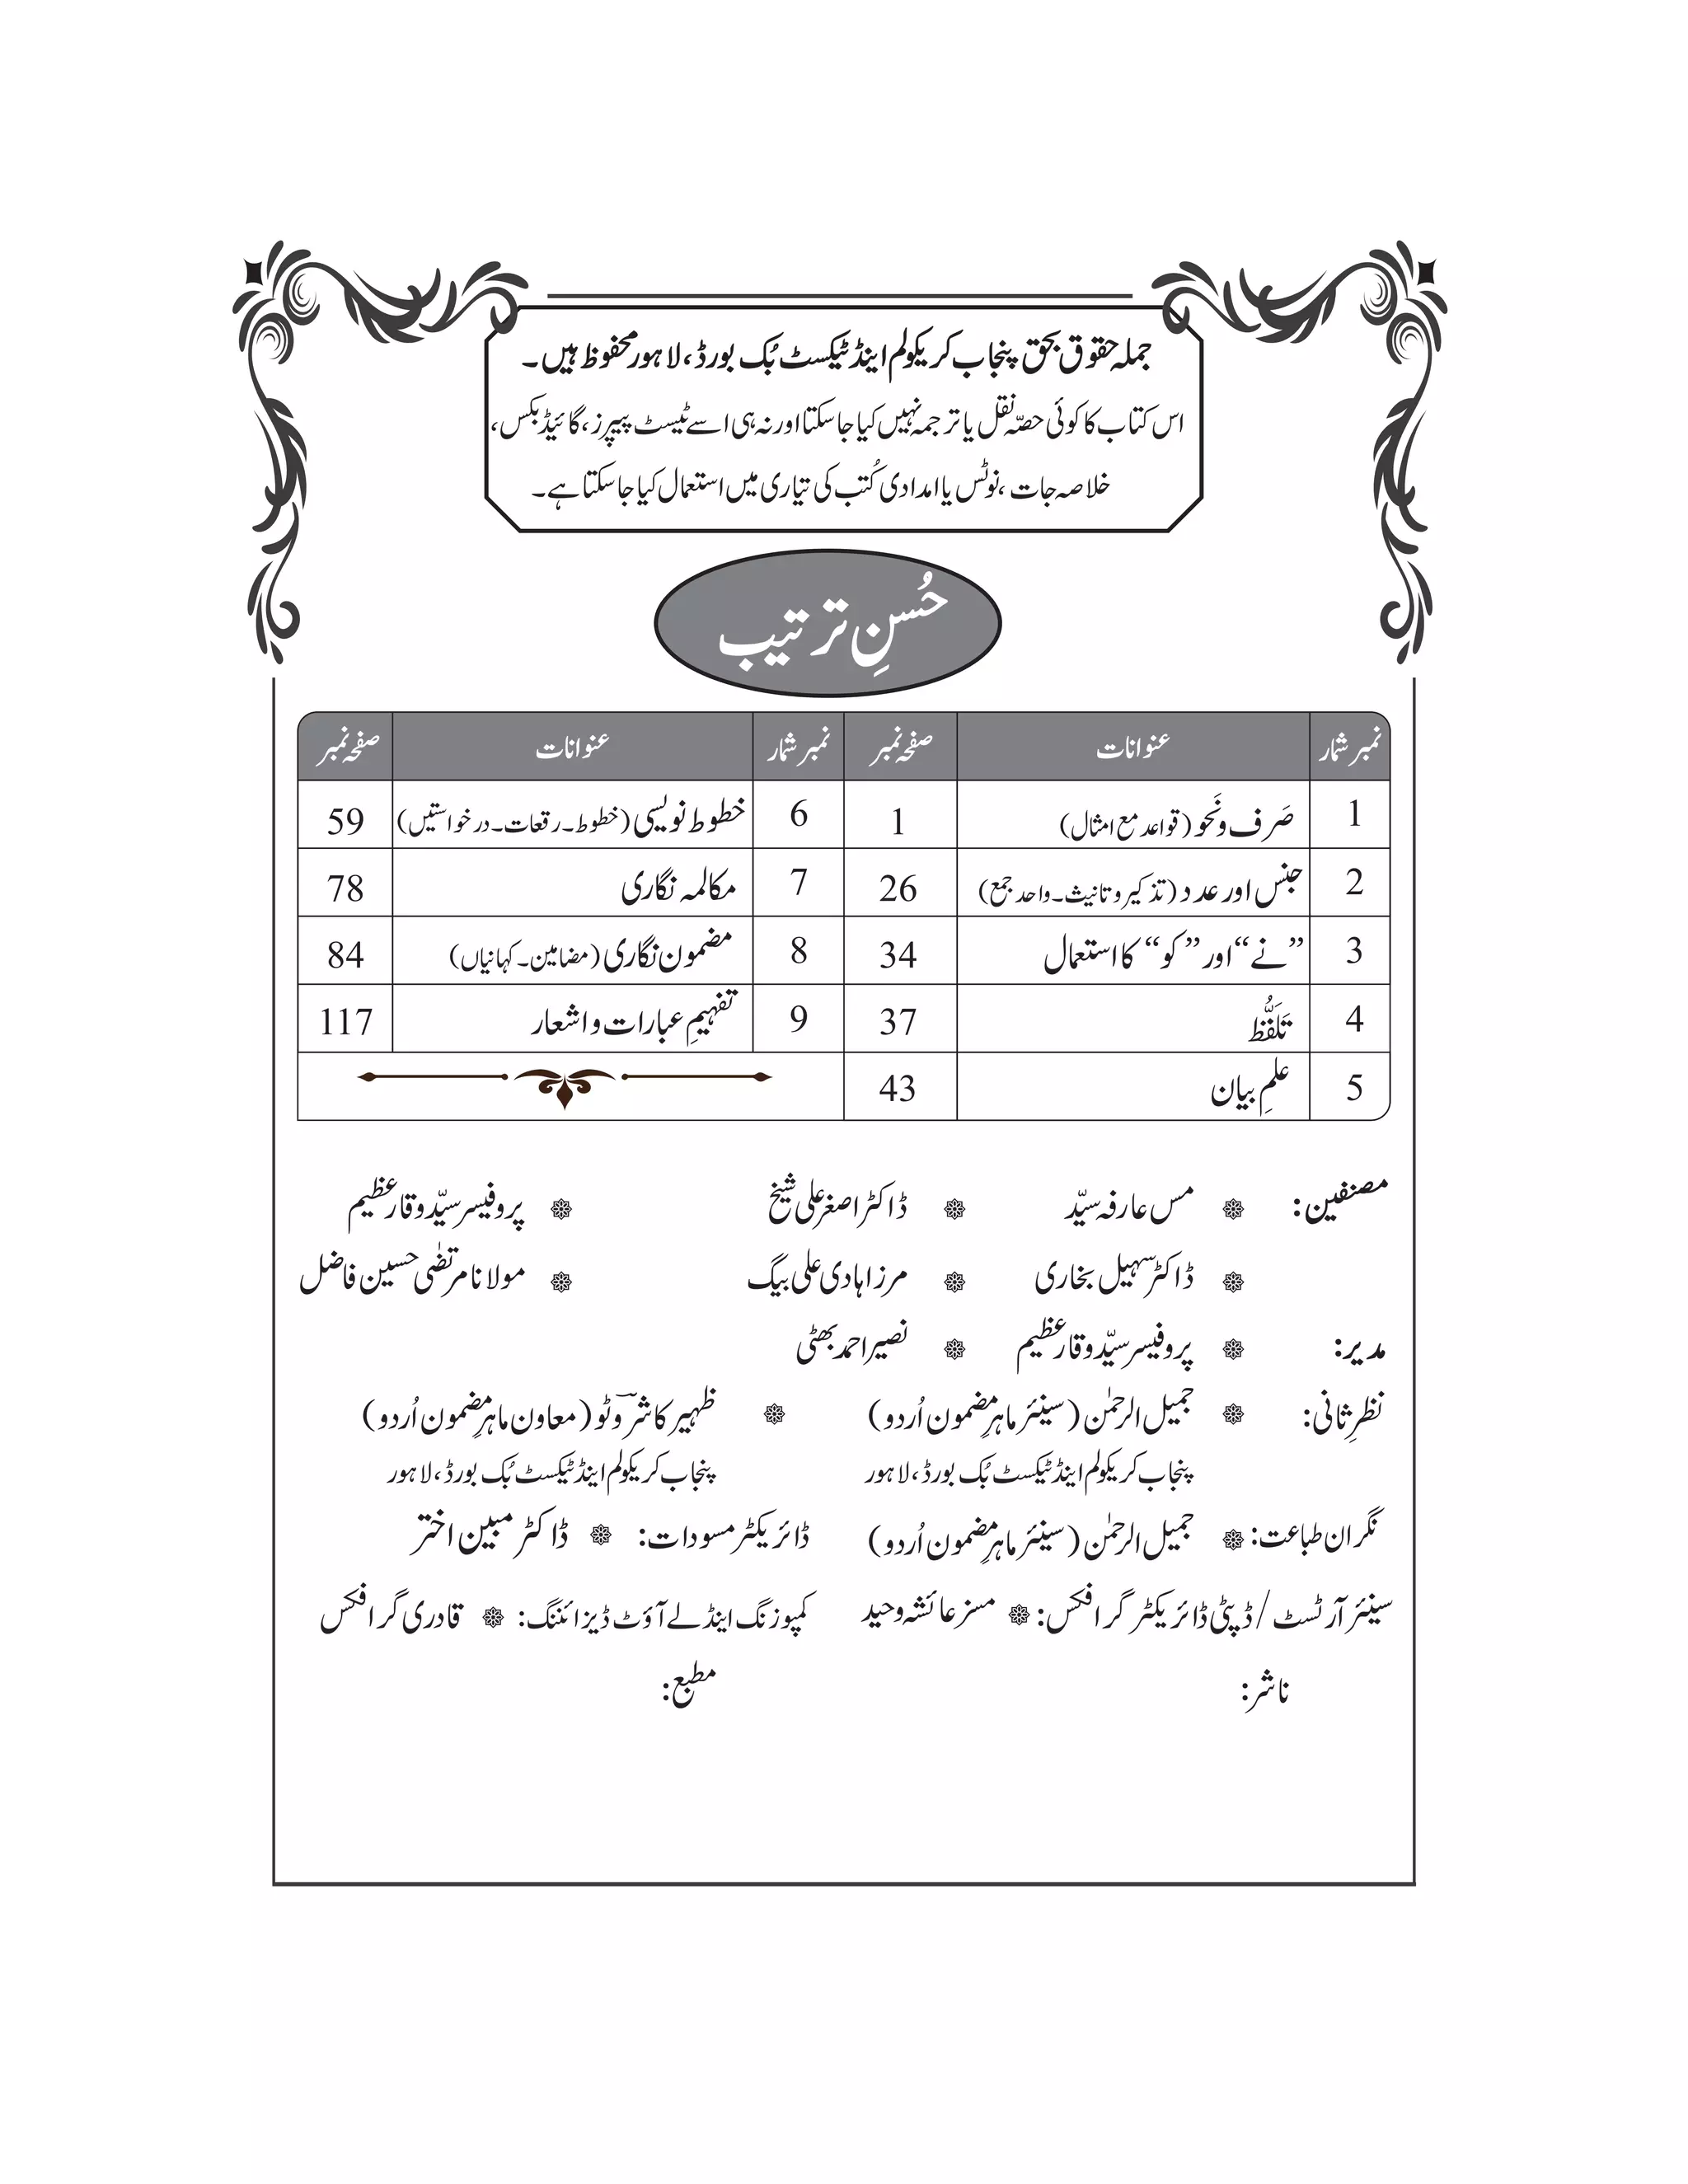 جملہ حقوق بحق پنجاب کریکولم اینڈ ٹیکسٹ بُک بورڈ، لاہور محفوظ ہیں۔
اس کتاب کا کوئی حصّہ نقل یا ترجمہ نہیں کیا جا سکتا اور نہ ہی اسے ٹیسٹ پیپرز، گائیڈ بکس،
خلاصہ جات، نوٹس یا امدادی کُتب کی تیاری میں استعمال کیا جا سکتا ہے۔
حُسنِ ترتیب
نمبر شمار عنوانات صفحہ نمبر نمبر شمار عنوانات صفحہ نمبر
1 صَرف و نَحو (قواعد مع امثال) 1 6 خطوط نویسی (خطوط۔ رقعات۔ درخواستیں) 59
2 جنس اور عدد (تذکیر و تانیث۔ واحد جمع) 26 7 مکالمہ نگاری 78
3 ”نے“ اور ”کو“ کا استعمال 34 8 مضمون نگاری (مضامین۔ کہانیاں) 84
4 تَلَفُّظ 37 9 تفہیمِ عبارات و اشعار 117
5 علمِ بیان 43
مصنفین: مس عارفہ سیّد ڈاکٹر اصغر علی شیخ پروفیسر سیّد وقار عظیم
ڈاکٹر سہیل بخاری مرزا ہادی علی بیگ مولانا مرتضیٰ حسین فاضل
مدیر: پروفیسر سیّد وقار عظیم نصیر احمد بھٹی
نظرِ ثانی: جمیل الرحمٰن (سینئر ماہرِ مضمون اُردو) ظہیر کاشرؔ وٹو (معاون ماہرِ مضمون اُردو)
پنجاب کریکولم اینڈ ٹیکسٹ بُک بورڈ، لاہور پنجاب کریکولم اینڈ ٹیکسٹ بُک بورڈ، لاہور
نگران طباعت: جمیل الرحمٰن (سینئر ماہرِ مضمون اُردو) ڈائریکٹر مسودات: ڈاکٹر مبین اختر
سینئر آرٹسٹ/ڈپٹی ڈائریکٹر گرافکس: مسز عائشہ وحید کمپوزنگ اینڈ لے آؤٹ ڈیزائننگ: قادری گرافکس
ناشر: مطبع: